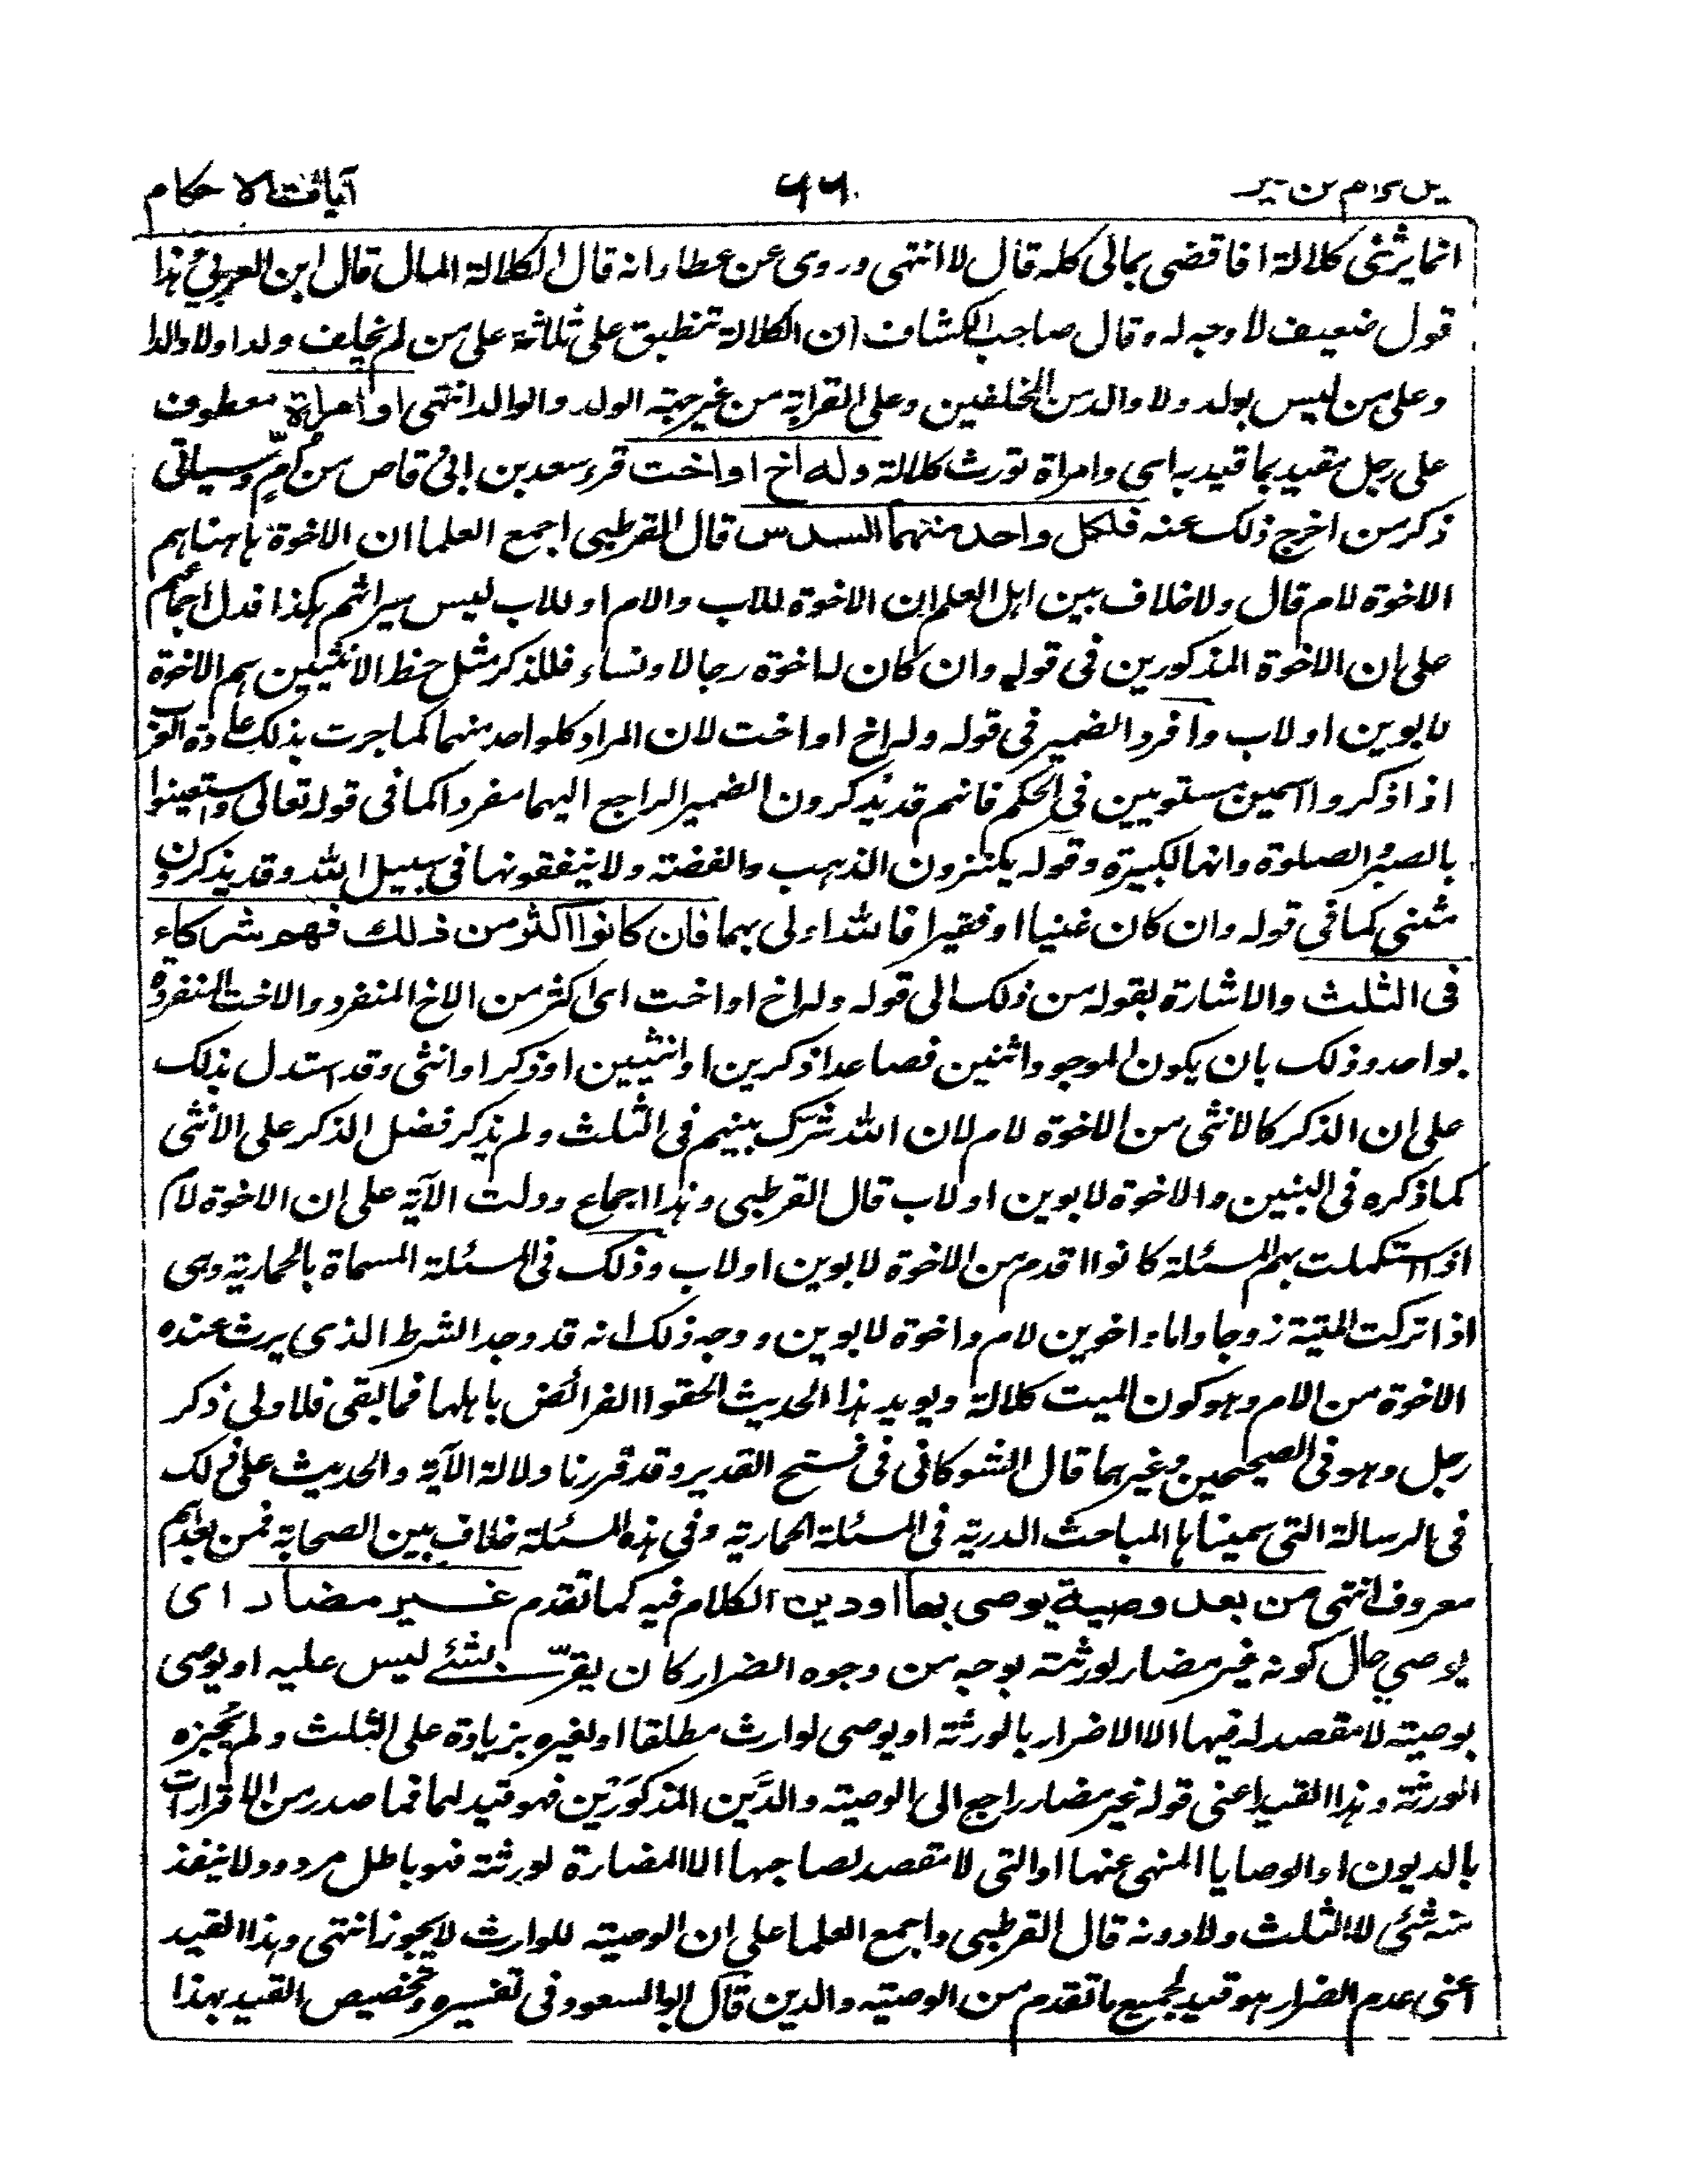 آيات الاحكام
انما يرثنى كلالة افاقضى بمالى كله قال لا انتهى وروى عن عطاء انه قال الكلالة المال قال ابن العربى هذا
قول ضعيف لا وجه له وقال صاحب الكشاف ان الكلالة تنطبق على ثلثة على من لم يخلف ولدا ولا والدا
وعلى من ليس بولد ولا والد من المخلفين وعلى القرابة من غير جهة الولد والوالد انتهى او امراة معطوف
على رجل مقيد بما قيد به اى وامراة تورث كلالة وله اخ او اخت قرء سعد بن ابى وقاص من أمٍّ وسياتى
ذكر من اخرج ذلك عنه فلكل واحد منهما السدس قال القرطبى اجمع العلما ان الاخوة هاهنا هم
الاخوة لام قال ولا خلاف بين اهل العلم ان الاخوة للاب والام او للاب ليس ميراثهم هكذا فدل اجماعهم
على ان الاخوة المذكورين فى قوله وان كان له اخوة رجالا ونساء فللذكر مثل حظ الانثيين هم الاخوة
لابوين او لاب وافرد الضمير فى قوله وله اخ او اخت لان المراد كل واحد منهما كما جرت بذلك عادة العرب
اذا ذكروا اسمين مستويين فى الحكم فانهم قد يذكرون الضمير الراجع اليهما مفردا كما فى قوله تعالى واستعينوا
بالصبر والصلوة وانها لكبيرة وقوله يكنزون الذهب والفضة ولا ينفقونها فى سبيل الله وقد يذكرونه
مثنى كما فى قوله وان كان غنيا او فقيرا فالله اولى بهما فان كانوا اكثر من ذلك فهم شركاء
فى الثلث والاشارة بقوله من ذلك الى قوله وله اخ او اخت اى اكثر من الاخ المنفرد والاخت المنفردة
بواحد وذلك بان يكون الموجود اثنين فصاعدا ذكرين او انثيين او ذكرا وانثى وقد استدل بذلك
على ان الذكر كالانثى من الاخوة لام لان الله شرّك بينهم فى الثلث ولم يذكر فضل الذكر على الانثى
كما ذكره فى البنين والاخوة لابوين او لاب قال القرطبى وهذا اجماع ودلت الآية على ان الاخوة لام
اذا استكملت بهم المسئلة كانوا اقدم من الاخوة لابوين او لاب وذلك فى المسئلة المسماة بالحمارية وهى
اذا تركت الميتة زوجا واما واخوين لام واخوة لابوين ووجه ذلك انه قد وجد الشرط الذى يرث عنده
الاخوة من الام وهو كون الميت كلالة ويويد هذا الحديث الحقوا الفرائض باهلها فما بقى فلاولى ذكر
رجل وهو فى الصحيحين وغيرهما قال الشوكانى فى فتح القدير وقد قررنا دلالة الآية والحديث على ذلك
فى الرسالة التى سميناها المباحث الدرية فى المسئلة الحمارية وفى هذه المسئلة خلاف بين الصحابة فمن بعدهم
معروف انتهى من بعد وصية يوصى بها او دين الكلام فيه كما تقدم غير مضار اى
يوصي حال كونه غير مضار لورثته بوجه من وجوه الضرار كان يقرّ بشئے ليس عليه او يوصى
بوصية لا مقصد له فيها الا الاضرار بالورثة او يوصى لوارث مطلقا او لغيره بزيادة على الثلث ولم يُجزه
الورثة وهذا القيد اعنى قوله غير مضار راجع الى الوصية والدَّين المذكورَين فهو قيد لهما فما صدر من الاقرارات
بالديون او الوصايا المنهى عنها او التى لا مقصد لصاحبها الا المضارة لورثته فهو باطل مردود ولا ينفذ
منه شئى لا الثلث ولا دونه قال القرطبى واجمع العلما على ان الوصية للوارث لا يجوز انتهى وهذا القيد
اعنى عدم الضرار هو قيد لجميع ما تقدم من الوصية والدين قال ابو السعود فى تفسيره وتخصيص القيد بهذا